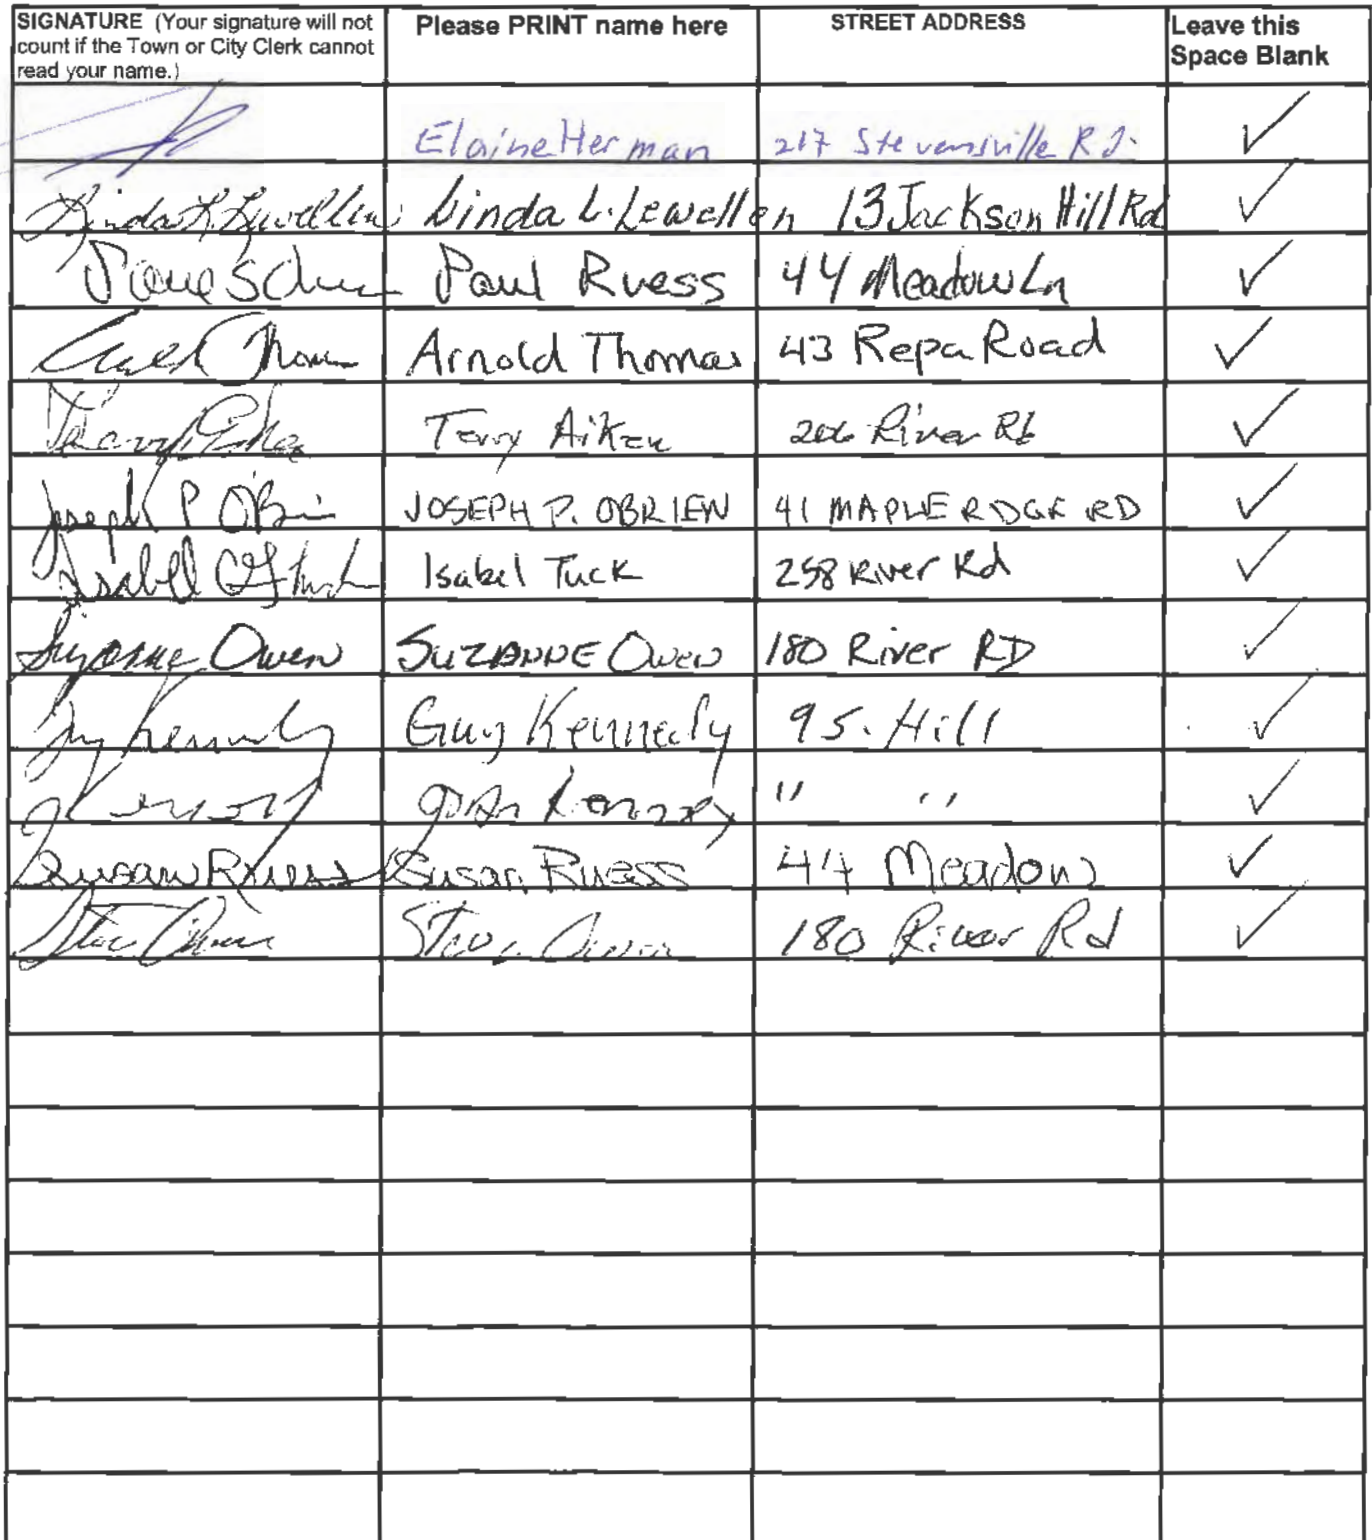 SIGNATURE (Your signature will not count if the Town or City Clerk cannot read your name.) Please PRINT name here STREET ADDRESS Leave this Space Blank
Elaine Herman 217 Stevensville Rd. ✓
Linda L. Lewellen Linda L. Lewellen 13 Jackson Hill Rd ✓
Paul Ruess 44 Meadow Ln ✓
Arnold Thomas 43 Repa Road ✓
Terry Aiken 206 River Rd ✓
Joseph P O'Brien JOSEPH P. OBRIEN 41 MAPLE RDGE RD ✓
Isabel Tuck 258 River Rd ✓
Suzanne Owen SUZANNE Owen 180 River RD ✓
Guy Kennedy Guy Kennedy 9 S. Hill ✓
Kennedy " " ✓
Susan Ruess Susan Ruess 44 Meadow ✓
Steve Owen Steve Owen 180 River Rd ✓